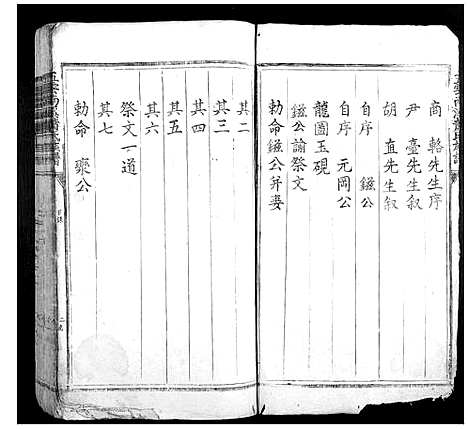 商 輅先生序
尹 臺先生敘
胡 直先生叙
自序 鎡公
自序 元岡公
龍圖玉硯
鎡公諭祭文
勅命鎡公并妻
其二
其三
其四
其五
其六
祭文一道
其七
勅命 聚公